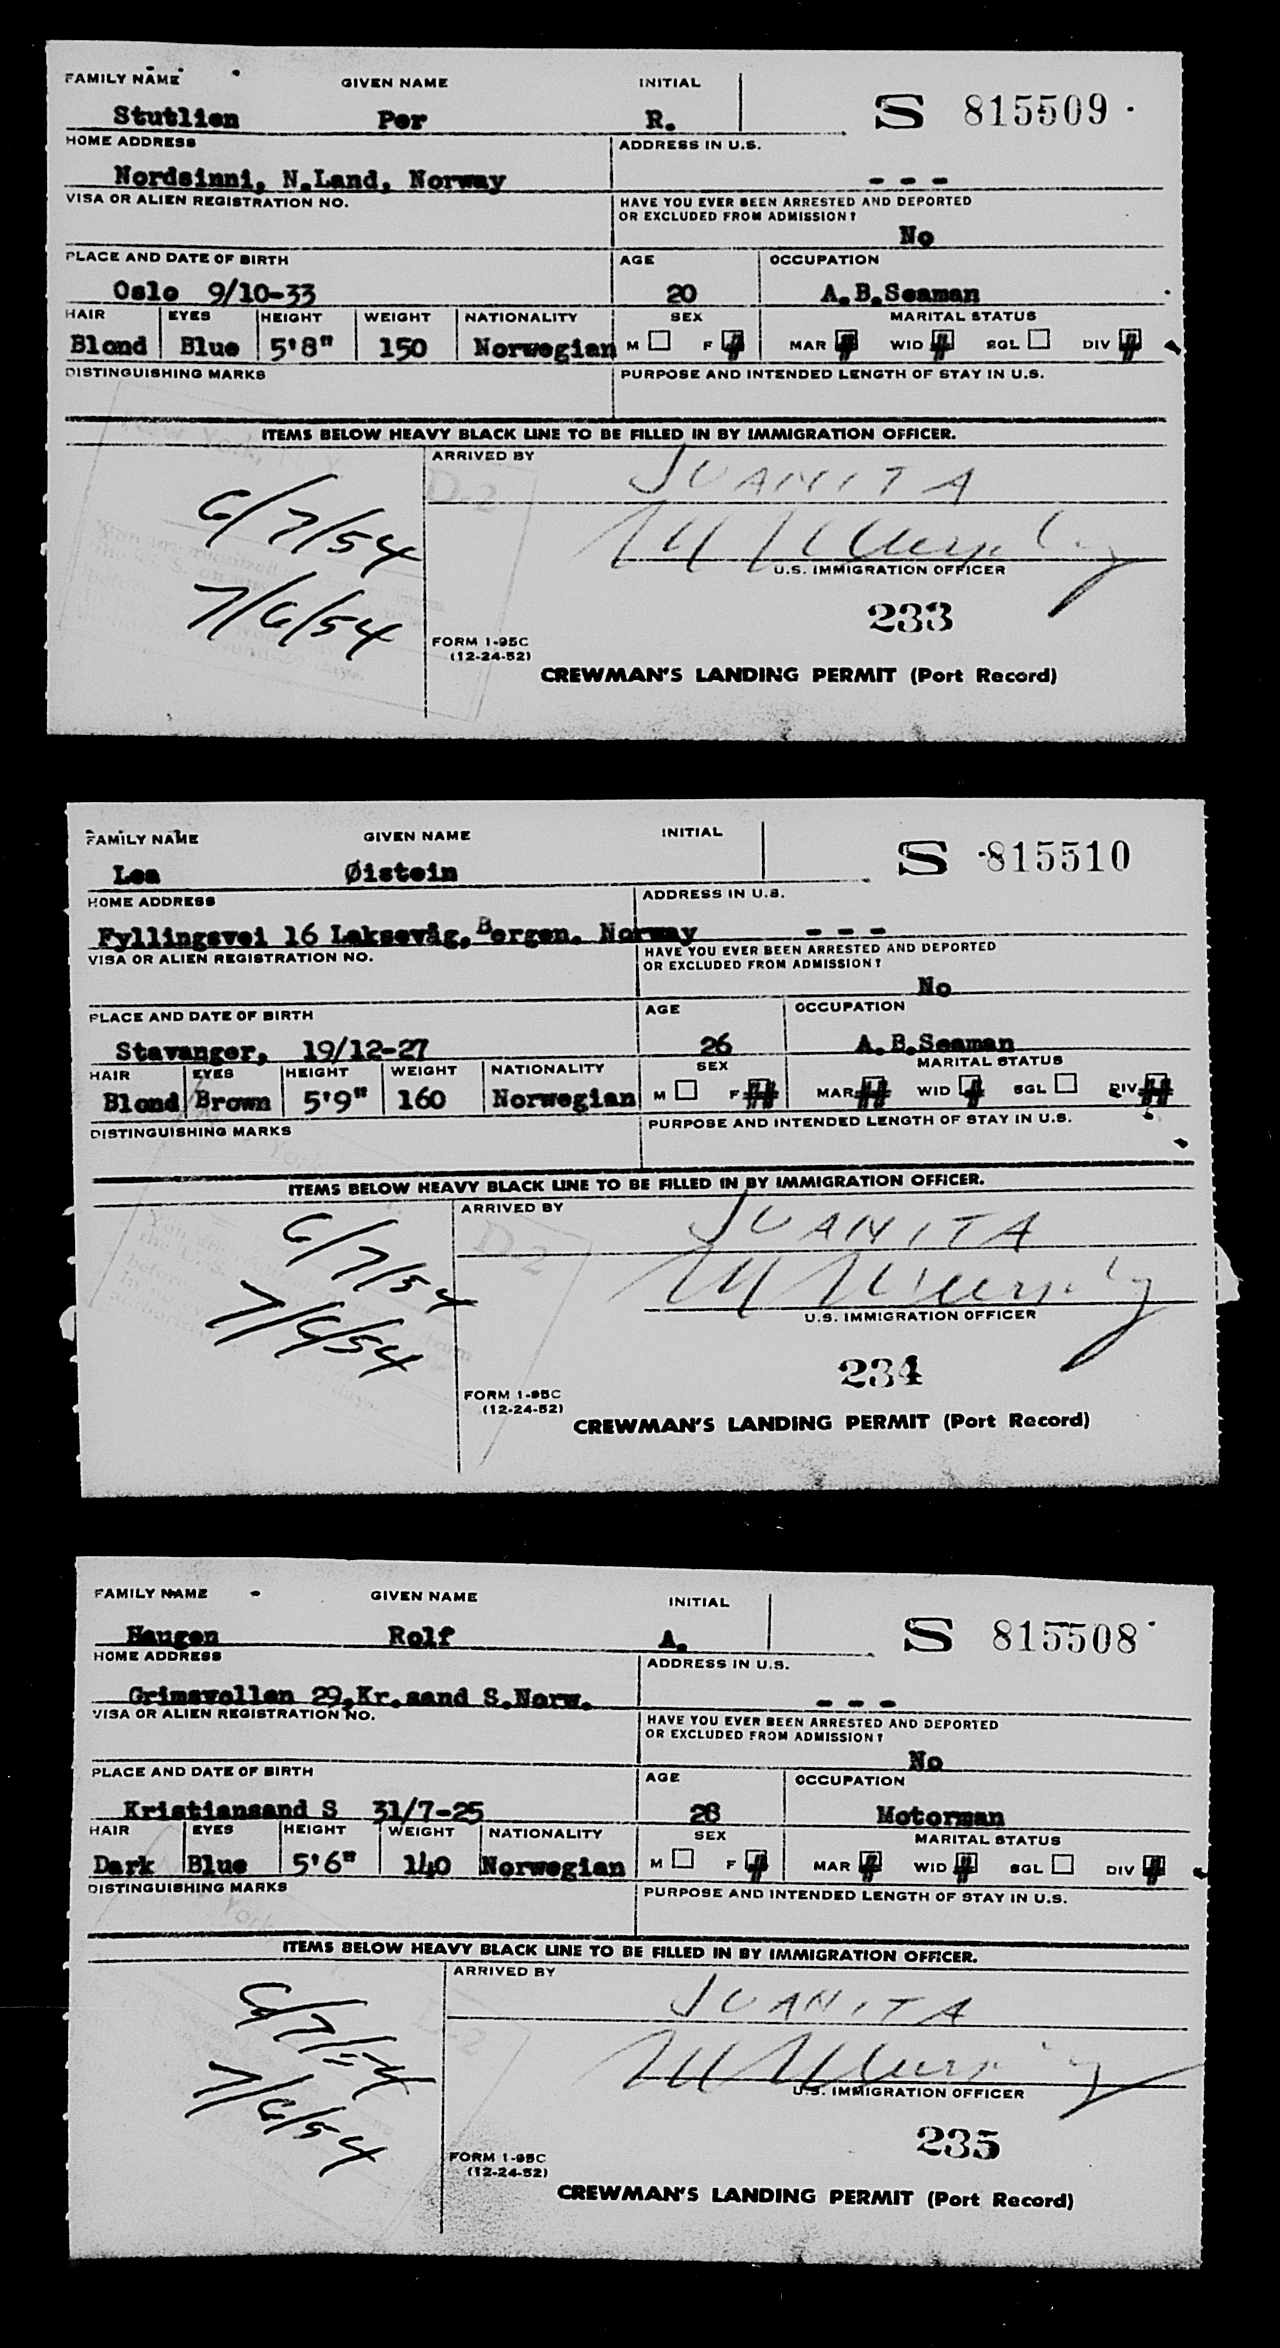 FAMILY NAME GIVEN NAME INITIAL
Stutlien Per R. S 815509
HOME ADDRESS ADDRESS IN U.S.
Nordsinni, N.Land, Norway - - -
VISA OR ALIEN REGISTRATION NO. HAVE YOU EVER BEEN ARRESTED AND DEPORTED
OR EXCLUDED FROM ADMISSION?
No
PLACE AND DATE OF BIRTH AGE OCCUPATION
Oslo 9/10-33 20 A.B.Seaman
HAIR EYES HEIGHT WEIGHT NATIONALITY SEX MARITAL STATUS
Blond Blue 5'8" 150 Norwegian M F MAR WID SGL DIV
DISTINGUISHING MARKS PURPOSE AND INTENDED LENGTH OF STAY IN U.S.
ITEMS BELOW HEAVY BLACK LINE TO BE FILLED IN BY IMMIGRATION OFFICER.
ARRIVED BY JUANITA
D-2
6/7/54
U.S. IMMIGRATION OFFICER
7/6/54
233
FORM I-95C
(12-24-52)
CREWMAN'S LANDING PERMIT (Port Record)
FAMILY NAME GIVEN NAME INITIAL
Lea Øistein S 815510
HOME ADDRESS ADDRESS IN U.S.
Fyllingsvei 16 Laksevåg, Bergen. Norway - - -
VISA OR ALIEN REGISTRATION NO. HAVE YOU EVER BEEN ARRESTED AND DEPORTED
OR EXCLUDED FROM ADMISSION?
No
PLACE AND DATE OF BIRTH AGE OCCUPATION
Stavanger, 19/12-27 26 A.B.Seaman
HAIR EYES HEIGHT WEIGHT NATIONALITY SEX MARITAL STATUS
Blond Brown 5'9" 160 Norwegian M F MAR WID SGL DIV
DISTINGUISHING MARKS PURPOSE AND INTENDED LENGTH OF STAY IN U.S.
ITEMS BELOW HEAVY BLACK LINE TO BE FILLED IN BY IMMIGRATION OFFICER.
ARRIVED BY JUANITA
D-2
6/7/54
U.S. IMMIGRATION OFFICER
7/6/54
234
FORM I-95C
(12-24-52)
CREWMAN'S LANDING PERMIT (Port Record)
FAMILY NAME GIVEN NAME INITIAL
Haugen Rolf A. S 815508
HOME ADDRESS ADDRESS IN U.S.
Grimsvollen 29,Kr.sand S.Norw. - - -
VISA OR ALIEN REGISTRATION NO. HAVE YOU EVER BEEN ARRESTED AND DEPORTED
OR EXCLUDED FROM ADMISSION?
No
PLACE AND DATE OF BIRTH AGE OCCUPATION
Kristiansand S 31/7-25 28 Motorman
HAIR EYES HEIGHT WEIGHT NATIONALITY SEX MARITAL STATUS
Dark Blue 5'6" 140 Norwegian M F MAR WID SGL DIV
DISTINGUISHING MARKS PURPOSE AND INTENDED LENGTH OF STAY IN U.S.
ITEMS BELOW HEAVY BLACK LINE TO BE FILLED IN BY IMMIGRATION OFFICER.
ARRIVED BY JUANITA
D-2
6/7/54
U.S. IMMIGRATION OFFICER
7/6/54
235
FORM I-95C
(12-24-52)
CREWMAN'S LANDING PERMIT (Port Record)